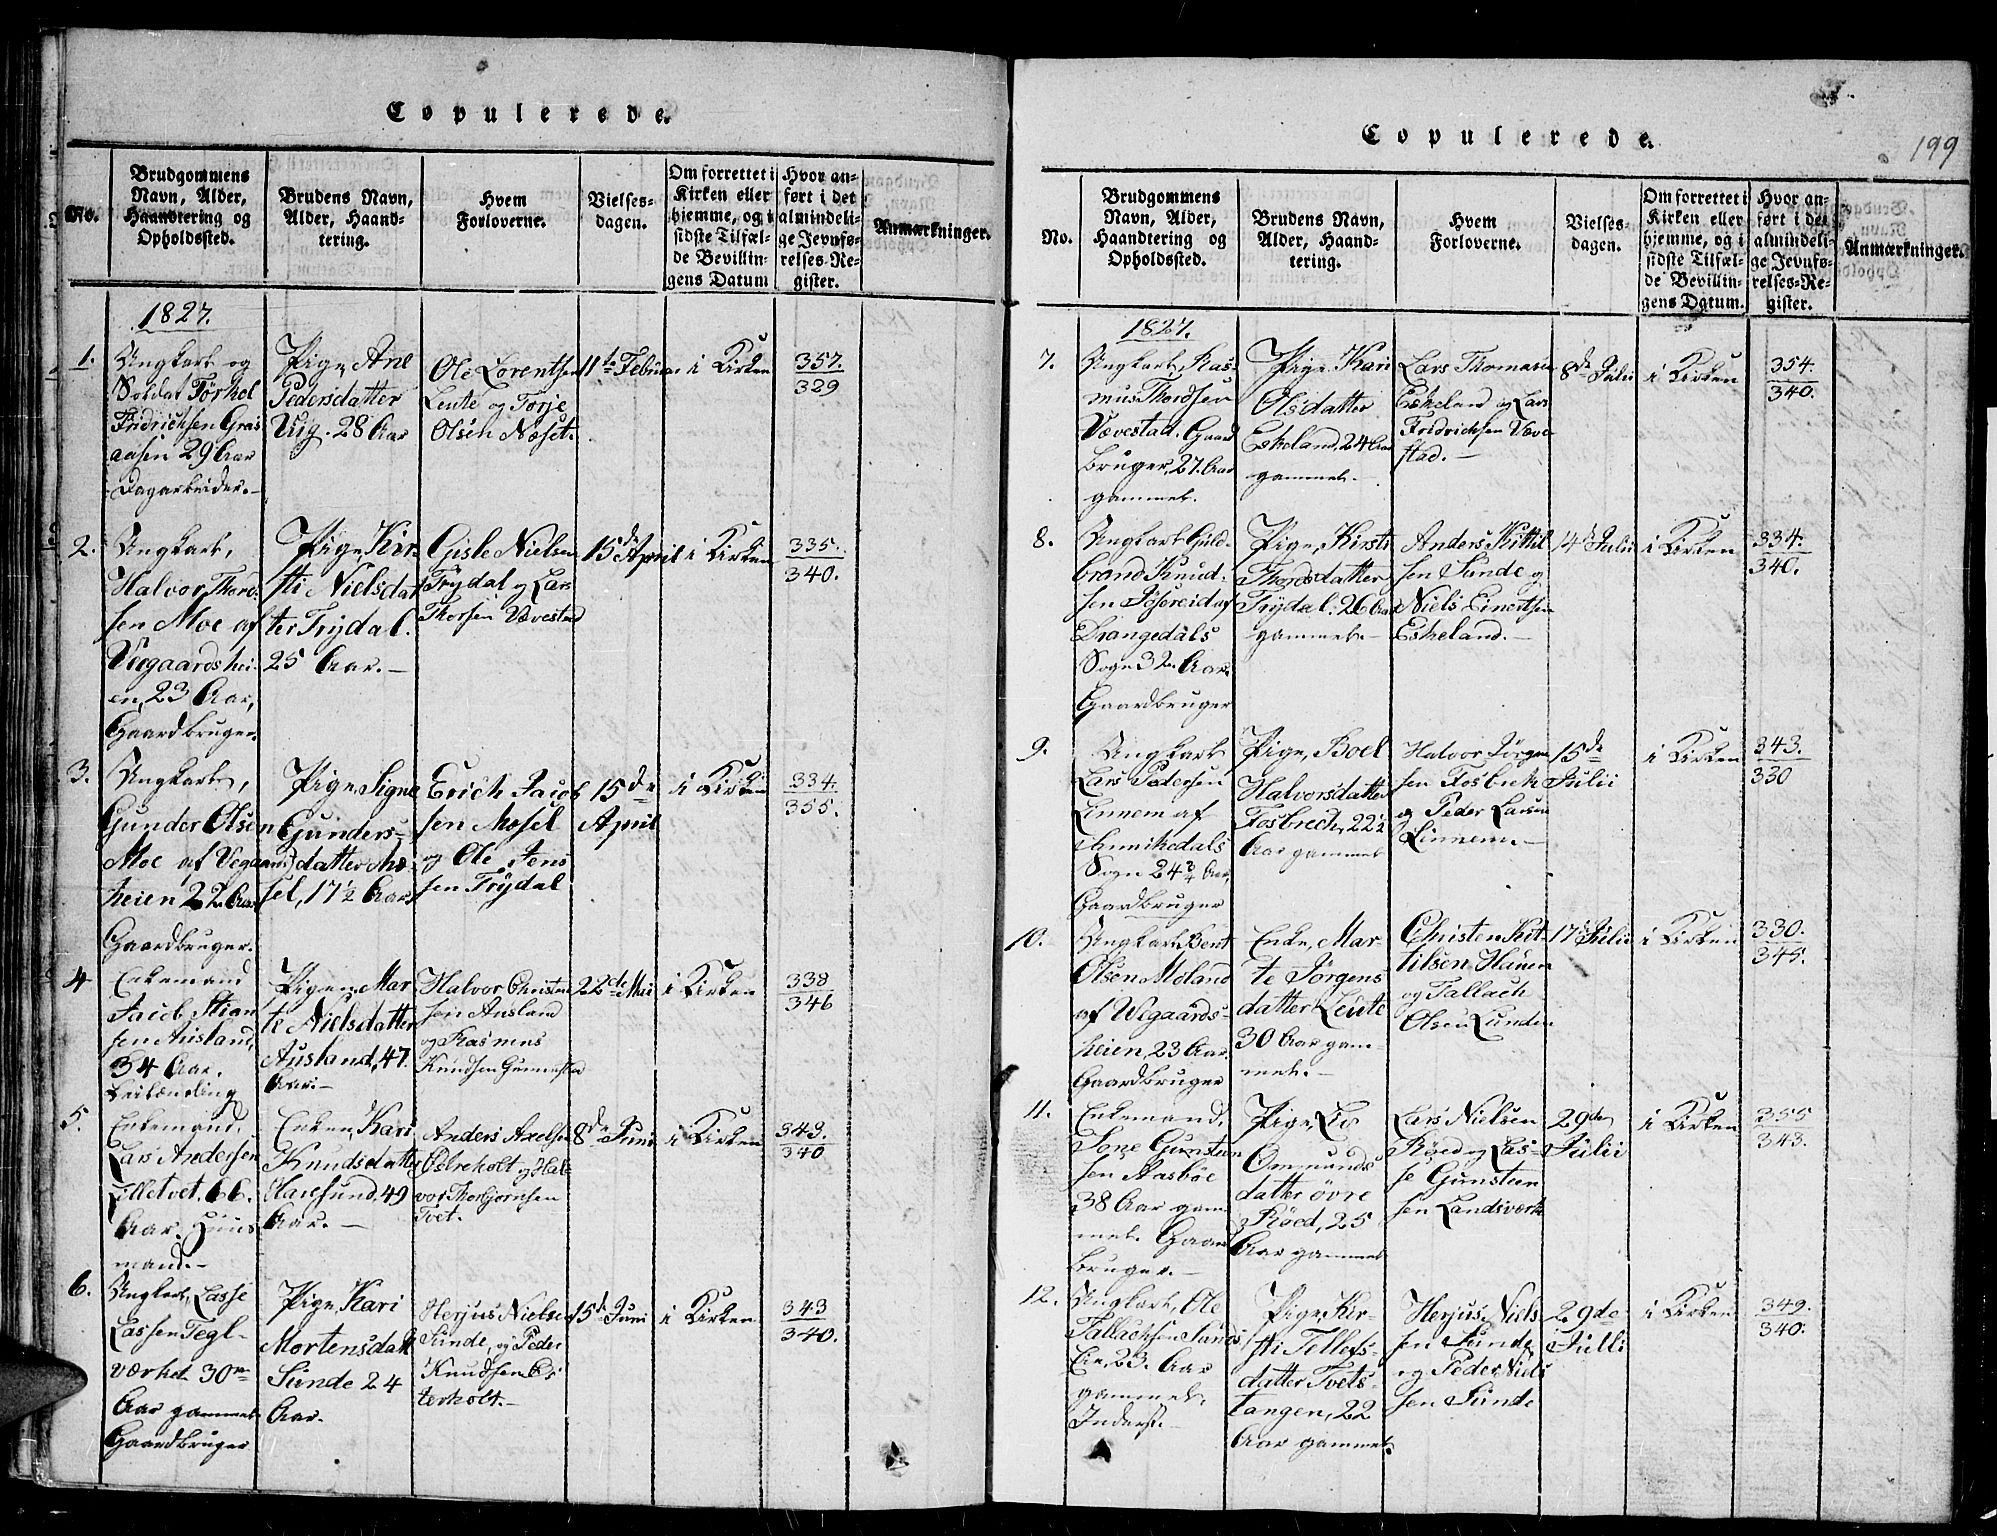 Copulerede.
No.
Brudgommens
Navn, Alder,
Haandtering og
Opholdssted.
Brudens Navn,
Alder, Haand-
tering.
Hvem
Forloverne.
Vielses-
dagen.
Om forrettet i
Kirken eller
hjemme, og i
sidste Tilfæl-
de Bevillin-
gens Datum
Hvor an-
ført i det
almindeli-
ge Jevnfø-
relses-Re-
gister.
Anmærkninger.
1827.
1.
Ungkarl og
Soldat Törkel
Fridrichsen Gras
aasen 29 Aar
Dagarbeider.-
Pige, Ane
Pedersdatter
Vig. 28 Aar
Ole Lorentsen
Leute og Torje
Olsen Næset.
11te Februar
i Kirken
357.
329
2.
Ungkarl,
Halvor Thord-
sen Moe af
Veegaardshei-
en, 23 Aar,
Gaardbruger.
Pige, Kir-
sti Nielsdat
ter Trydal.
25 Aar.-
Gisle Nielsen
Trydal og Lars
Thorsen Vævestad
15de April
i Kirken
335.
340.
3.
Ungkarl,
Gunder Olsen
Moe af Vegaards
heien 22 Aar
Gaardbruger.
Pige, Signe
Gunders-
datter Mo-
sel, 17 1/2 Aar
Erich Jacob
sen Mosel
og Ole Jens
sen Trydal
15de
April
i Kirken
334.
355.
4
Enkemand
Jacob Stian
sen Ausland,
34 Aar.
Leilænding
Pigen, Mar
te Nielsdatter
Ausland, 47
Aar.-
Halvor Christen
sen Ausland
og Rasmus
Knudsen Gunnestad
22de Mai
i Kirken
338
346
5.
Enkemand,
Lars Andersen
Lilletvet. 66.
Aar. Huus
mand.-
Enken, Kari
Knudsdatter
Haresund, 49
Aar.-
Anders Axelsen
Østreholt og Hal-
vor Thorbjørnsen
Tvet.
8de Juni
i Kirken
343.
340
6.
Ungkarl, Lasse
Lassen Tegl-
værket 30
Aar gammel
Gaardbruger
Pige, Kari
Mortensdatt
Sunde 24
Aar.
Herjus Nielsen
Sunde, og Peder
Knudsen Es
terholt.-
15de Juni
i Kirken
343
340.
Copulerede.
199
No.
Brudgommens
Navn, Alder,
Haandtering og
Opholdssted.
Brudens Navn,
Alder, Haand-
tering.
Hvem
Forloverne.
Vielses-
dagen.
Om forrettet i
Kirken eller
hjemme, og i
sidste Tilfæl-
de Bevillin-
gens Datum.
Hvor an-
ført i det
almindeli-
ge Jevnfø-
relses-Re-
gister.
Anmærkninger.
1827.
7.
Ungkarl, Ras-
mus Thordsen
Vævestad. Gaard
bruger, 27. Aar
gammel.
Pige, Kari
Olsdatter
Eskeland, 24 Aar
gammel.
Lars Thomasen
Eskeland og Lars
Fredrichsen Væve
stad.-
8de Julii
i Kirken
354.
340.
8.
Ungkarl Guld-
brand Knud-
sen af
Drangedals
Sogn 32. Aar.
Gaardbruger
Pige, Kirsti
Thordsdatter
Trydal. 26 Aar
gammel.-
Anders Kittil
sen Sunde og
Niels Einertsen
Eskeland.-
14de Julii
i Kirken
334.
340.
9.
Ungkarl
Lars Pedersen
Linnem af
Annikedals
Sogn 24 3/4 Aar,
Gaardbruger
Pige, Boel
Halvorsdatter
Fosbrech, 22 1/2
Aar gammel
Halvor Jörgen
sen Fosbrek
og Peder Larsen
Linnem.-
15de
Julii
i Kirken
343.
330
10.
Ungkarl Bent
Olsen Moland
af Wegaards-
heien, 23 Aar.
Gaardbruger
Enke, Mar-
te Jörgens
datter Leute
30 Aar gam-
mel.-
Christen Kit-
tilsen Hauen
og Tallach
Olsen Lunden
17de Julii
i Kirken
330.
345.
11.
Enkemand,
Jone Gunsten
sen Aasböe
38 Aar gam
mel. Gaard
bruger.-
Pige, Liv
Ommunds
datter övre
Röed, 25
Aar gammel
Lars Nielsen
Röed og Las-
se Gunsten
sen Landsverk
29de
Julii
i Kirken
355
343.
12.
Ungkarl, Ole
Tallachsen Sunds
Eie, 23. Aar
gammel.
Inderst.-
Pige, Kir-
sti Tellefs-
datter Tvets-
tangen, 22
Aar gammel.
Herjus Niels
sen Sunde
og Peder Niels
sen Sunde
29de
Julii
i Kirken
349.
340.